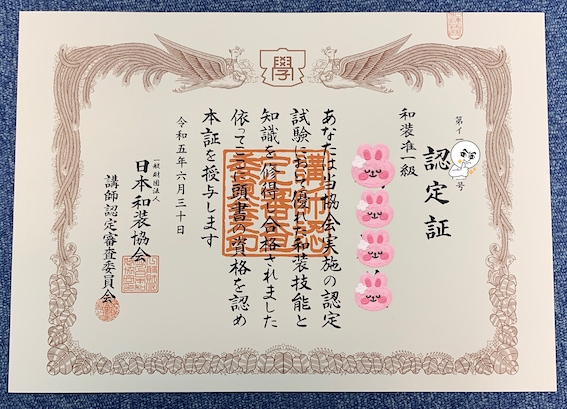 學
認定証
第イ
号
和装准一級
あなたは当協会実施の認定
試験において優れた和装技能と
知識を修得し合格されました
依ってここに頭書の資格を認め
本証を授与します
令和五年六月三十日
一般財団法人
日本和装協会
講師認定審査委員会